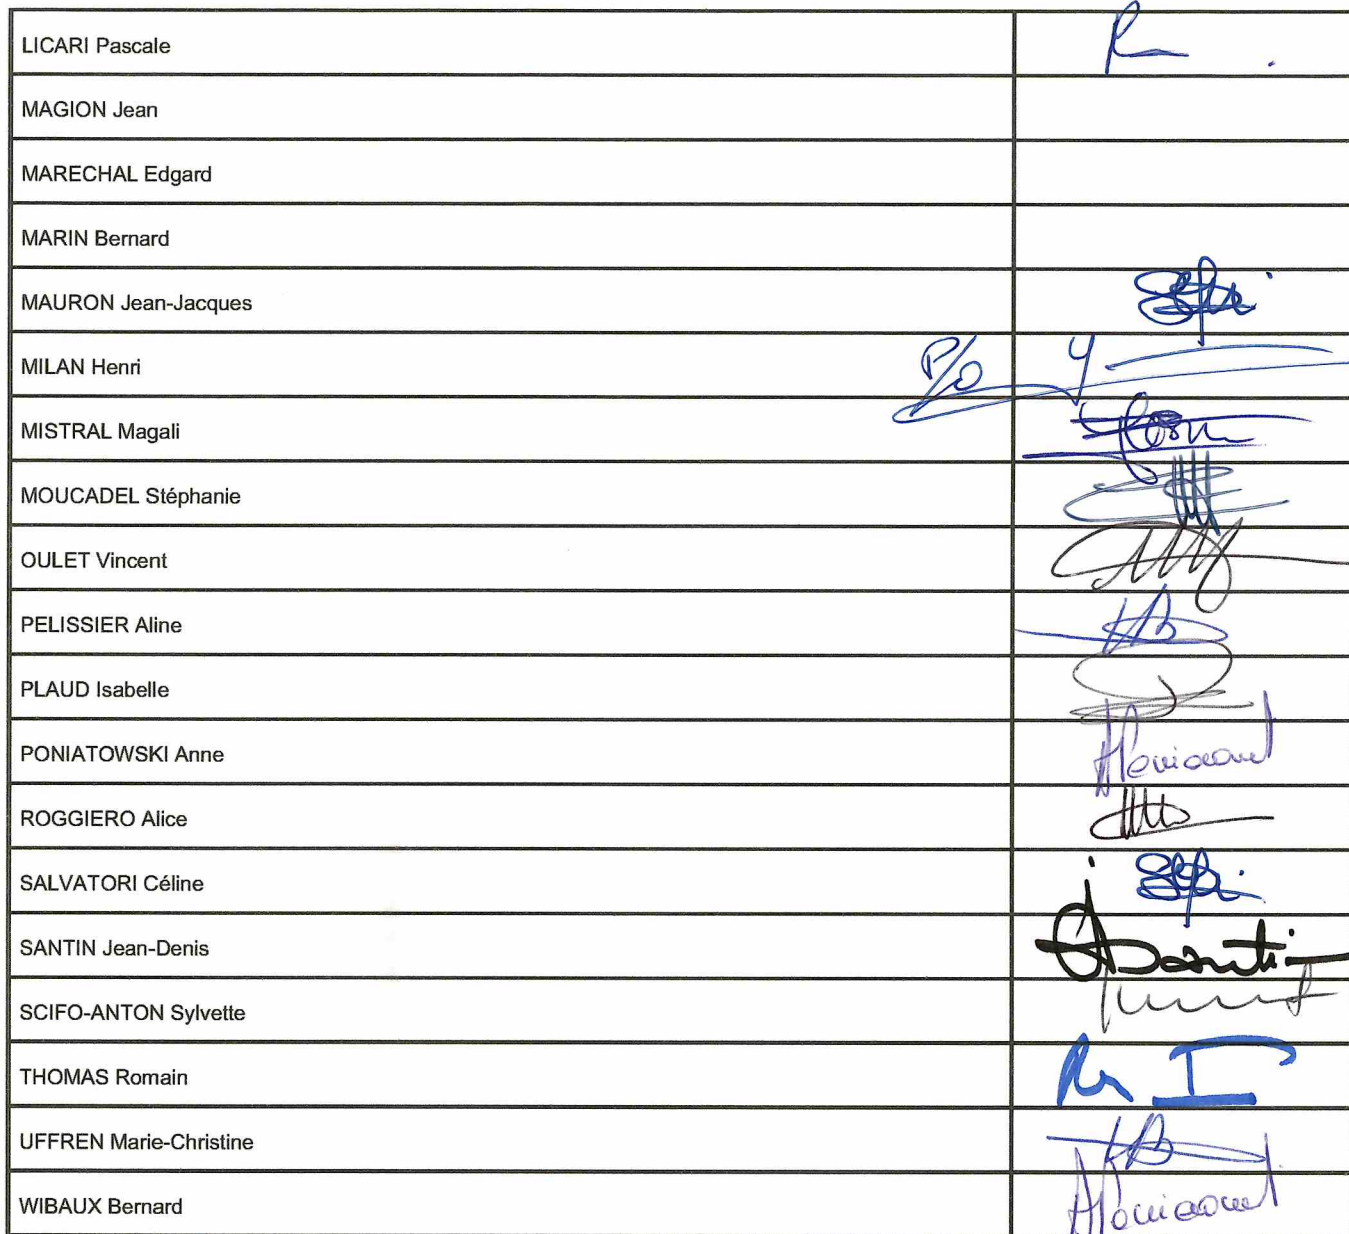 LICARI Pascale
MAGION Jean
MARECHAL Edgard
MARIN Bernard
MAURON Jean-Jacques
MILAN Henri P/o
MISTRAL Magali
MOUCADEL Stéphanie
OULET Vincent
PELISSIER Aline
PLAUD Isabelle
PONIATOWSKI Anne
ROGGIERO Alice
SALVATORI Céline
SANTIN Jean-Denis
SCIFO-ANTON Sylvette
THOMAS Romain
UFFREN Marie-Christine
WIBAUX Bernard